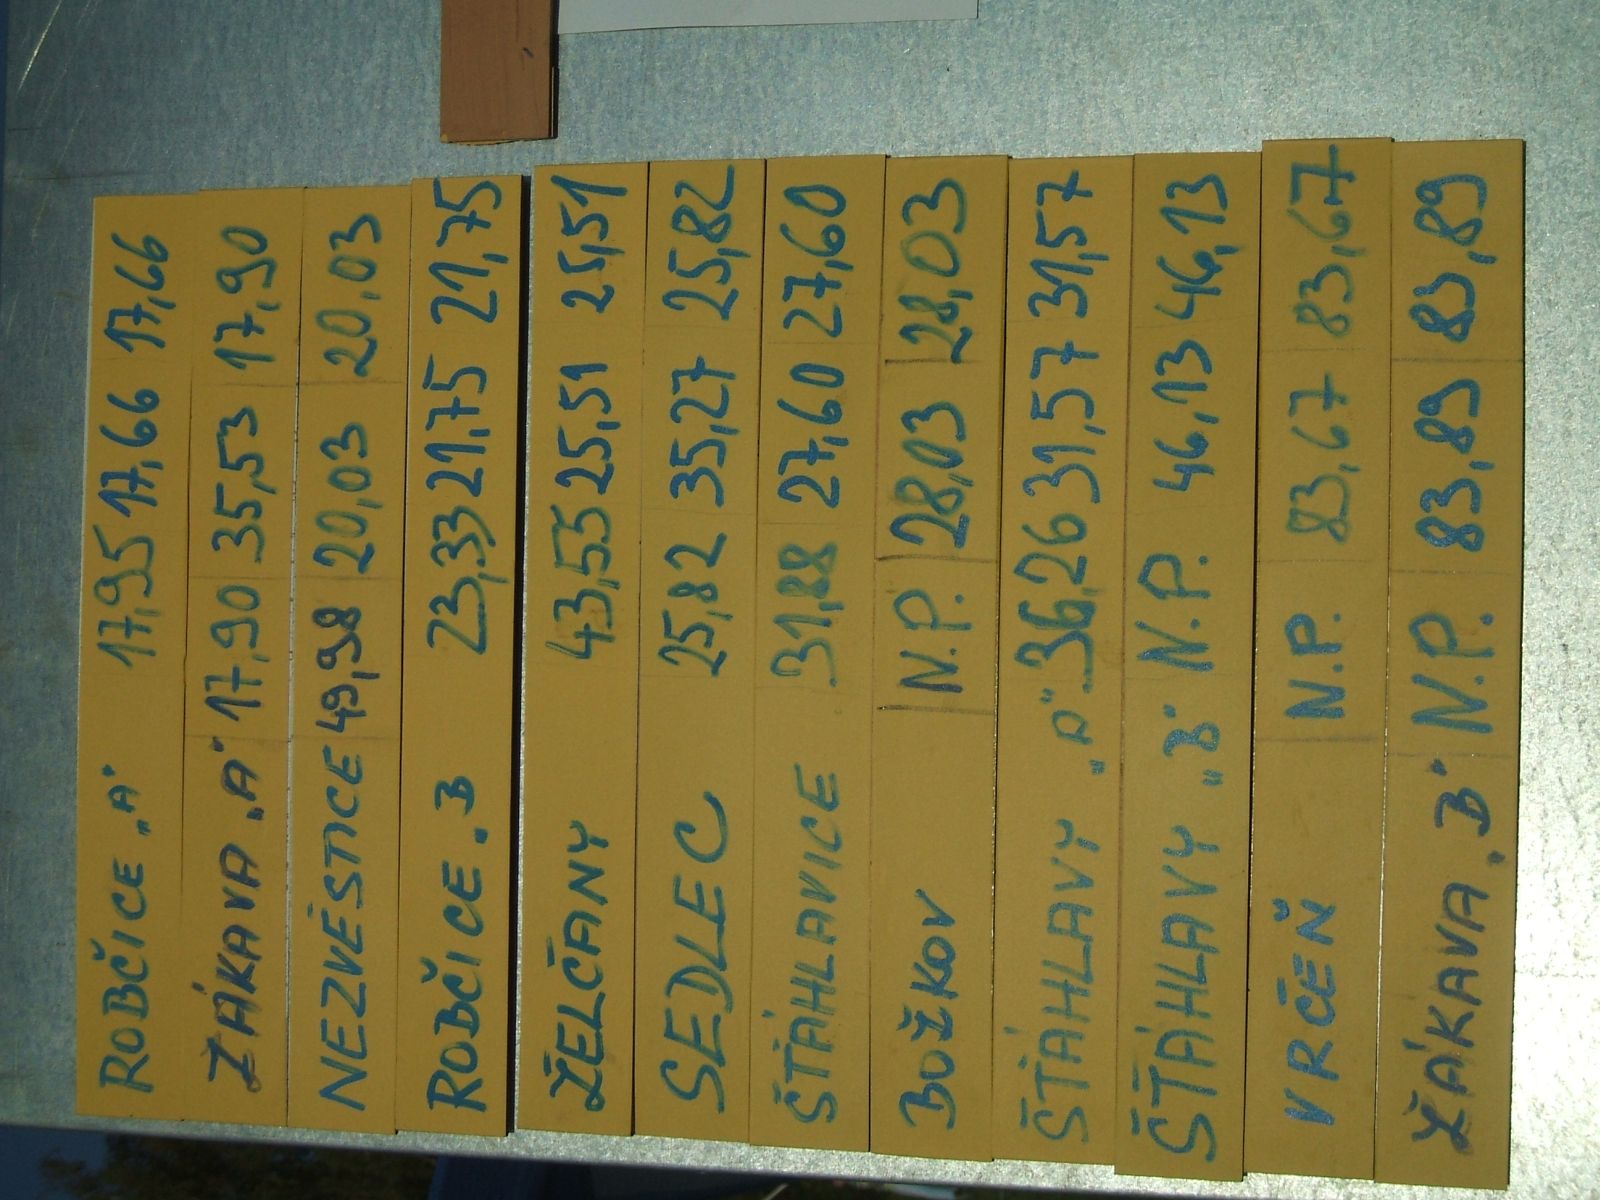 ROBČICE „A" 17,95 17,66 17,66
ŽÁKAVA „A" 17,90 35,53 17,90
NEZVĚSTICE 49,98 20,03 20,03
ROBČICE „B 23,33 21,75 21,75
ŽELČANY 43,55 25,51 25,51
SEDLEC 25,82 35,27 25,82
ŠŤÁHLAVICE 31,88 27,60 27,60
BOŽKOV N.P. 28,03 28,03
ŠŤÁHLAVY „A" 36,26 31,57 31,57
ŠŤÁHLAVY „B" N.P. 46,13 46,13
VRČEŇ N.P. 83,67 83,67
ŽÁKAVA „B" N.P. 83,89 83,89